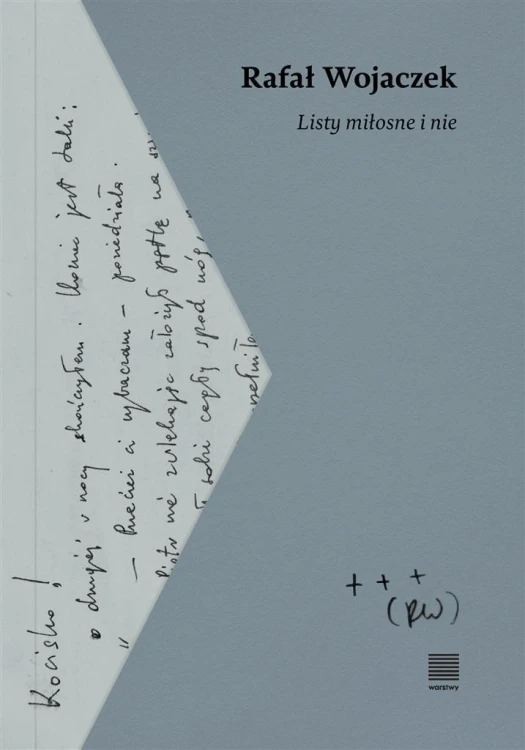 Rafał Wojaczek
Listy miłosne i nie
Kocisko!
o drugiej w nocy skończyłem. Koniec jest taki:
„— Przecież ci wybaczam — powiedziała.
Piotr nie zwlekając założył pętlę na szy
sobie cegły spod nóg,
wełniło
+ + +
(RW)
warstwy